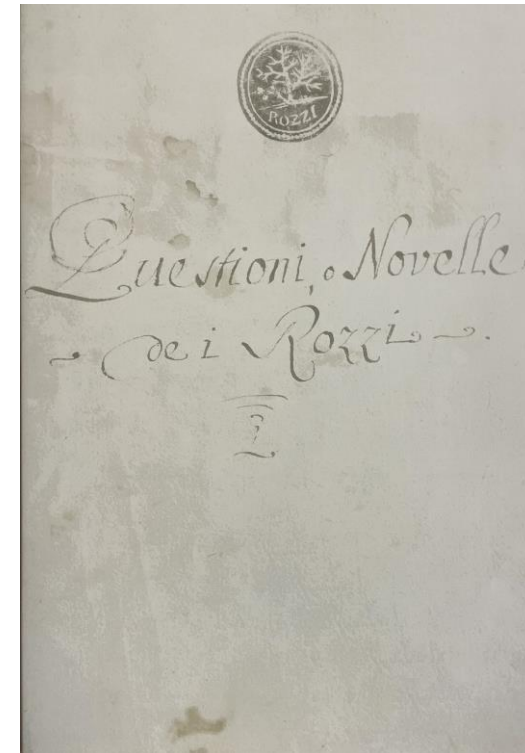 ROZZI
Questioni, o Novelle
de i Rozzi